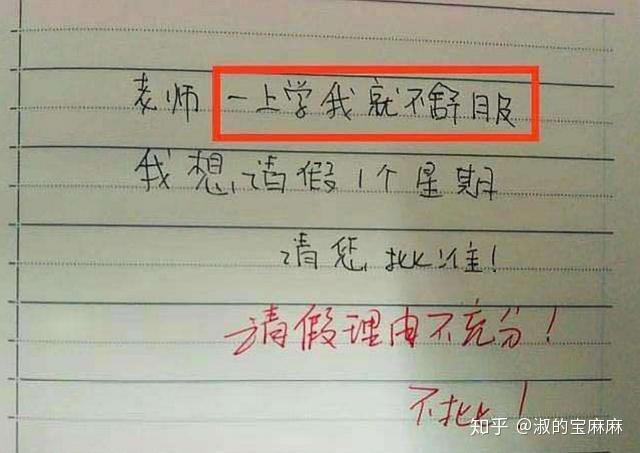 老师一上学我就不舒服
我想请假1个星期
请您批准!
请假理由不充分!
不批!
知乎 @淑的宝麻麻